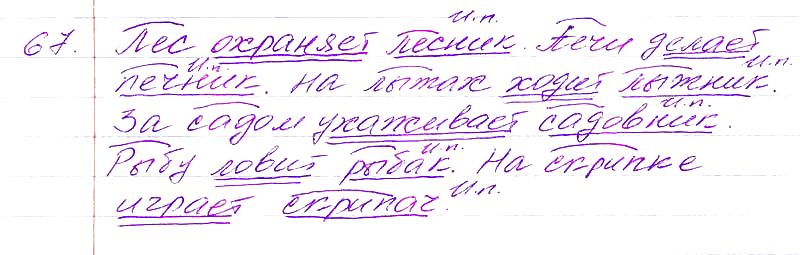 И.п.
67. Лес охраняет лесник. Печи делает
И.п. И.п.
печник. На лыжах ходит лыжник.
И.п.
За садом ухаживает садовник.
И.п.
Рыбу ловит рыбак. На скрипке
И.п.
играет скрипач.